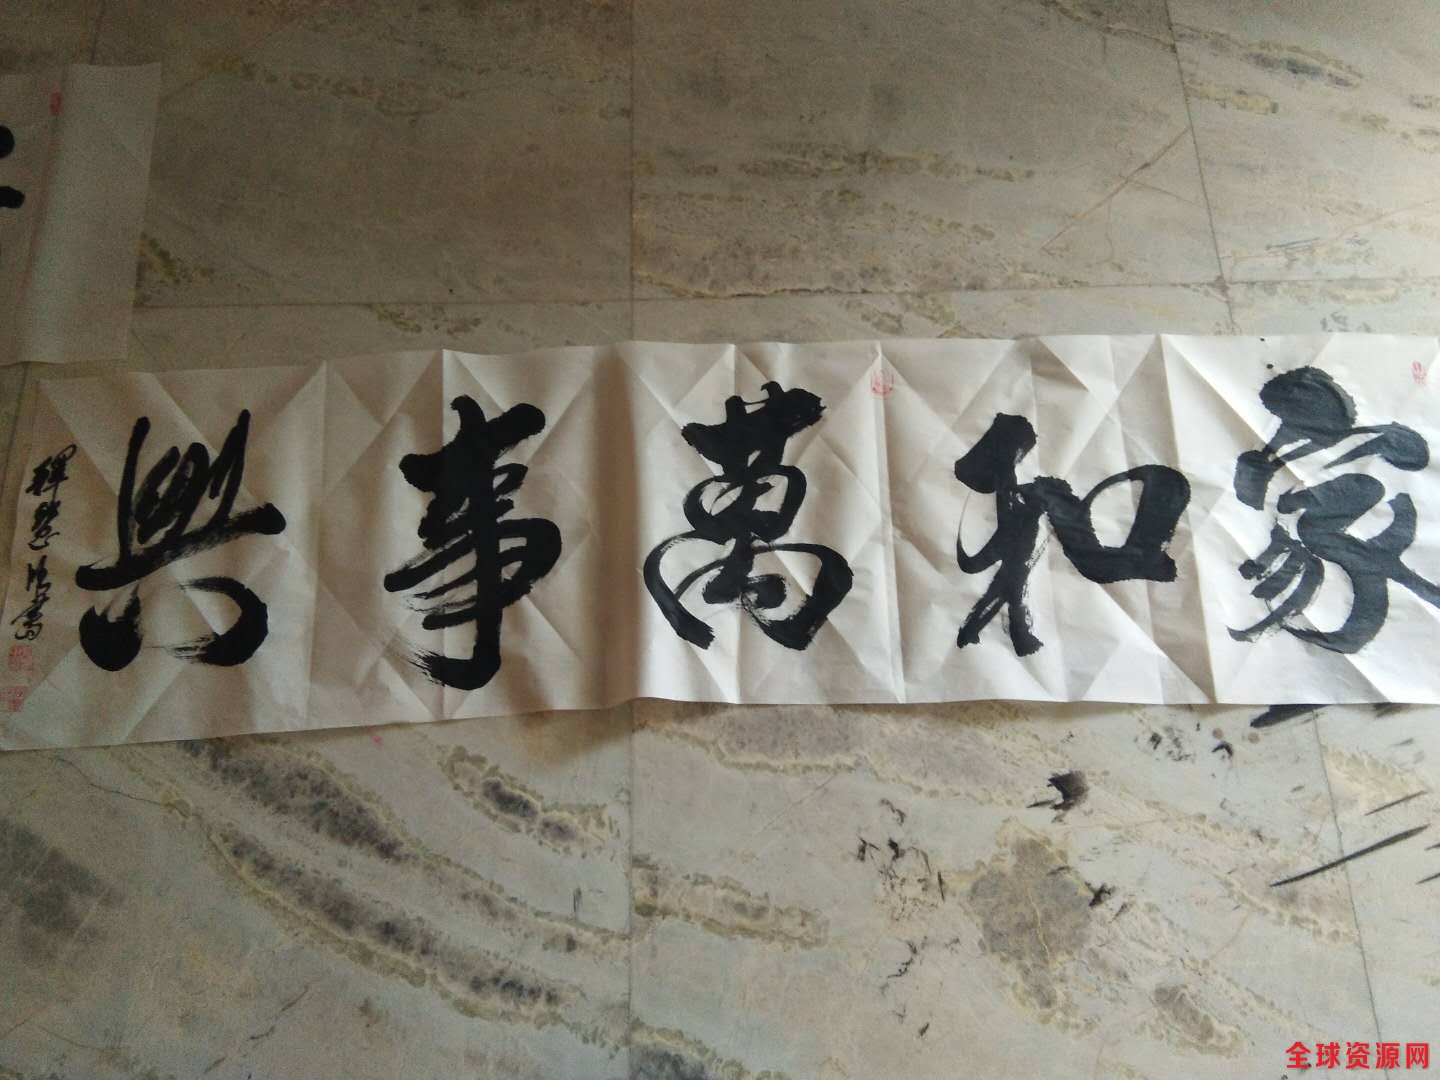 家和萬事興
釋慧浩書
全球资源网